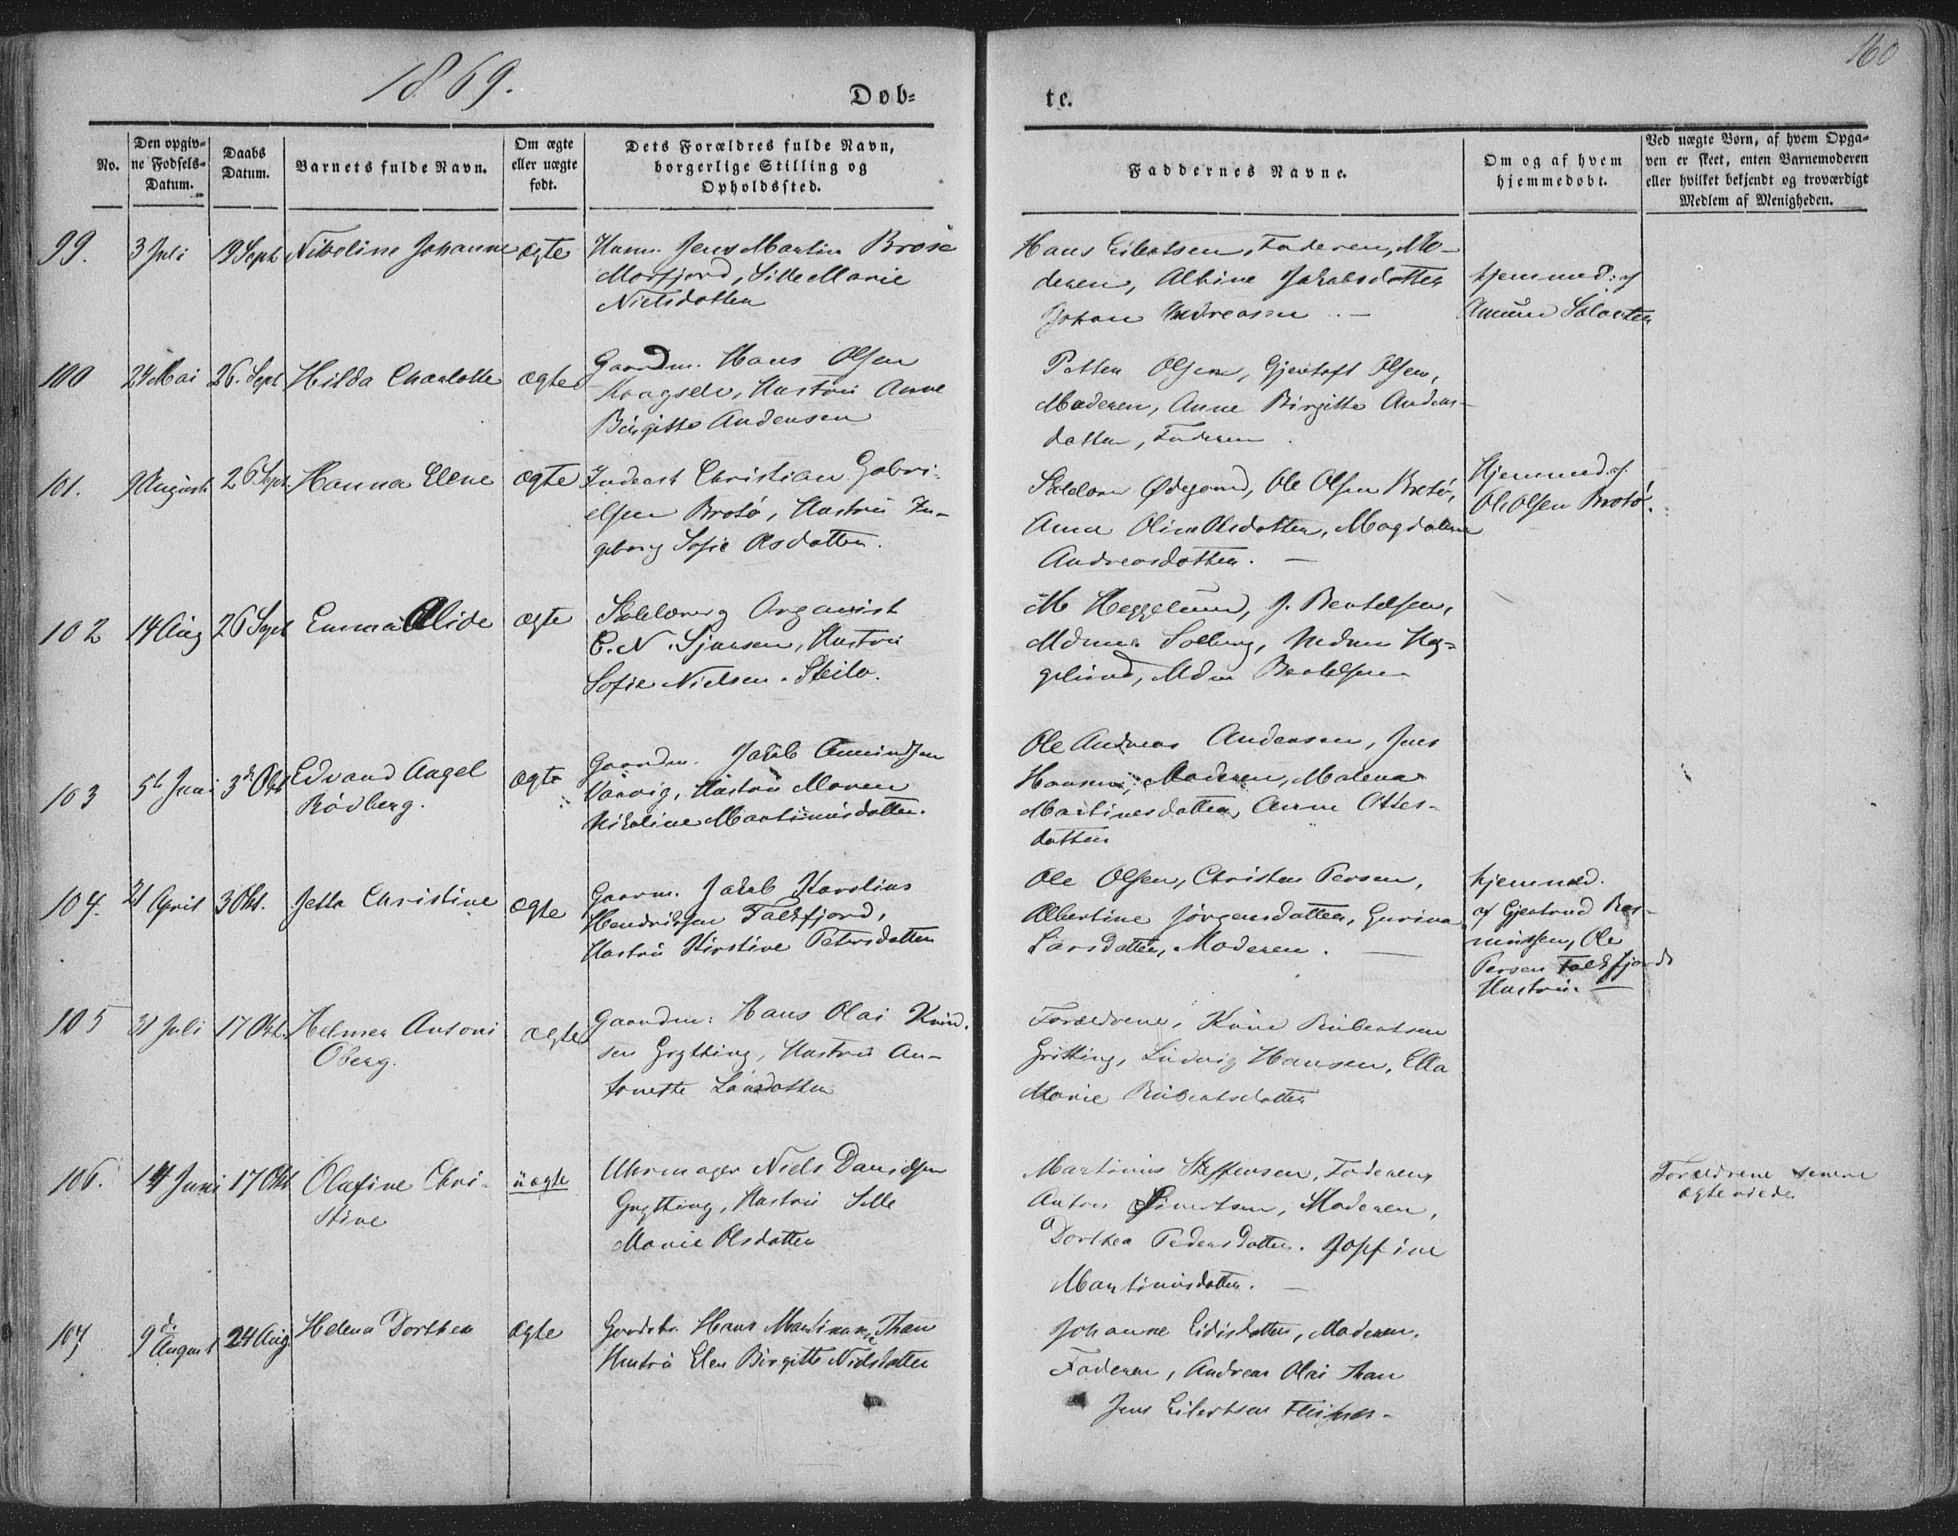 1869.
160
Døb=
te.
No.
Den opgiv=
ne Fødsels=
Datum.
Daabs
Datum.
Barnets fulde Navn.
Om ægte
eller uægte
født.
Dets Forældres fulde Navn,
borgerlige Stilling og
Opholdssted.
Faddernes Navne.
Om og af hvem
hjemmedøbt.
Ved uægte Børn, af hvem Opga=
ven er skeet, enten Barnemoderen
eller hvilket bekjendt og troværdigt
Medlem af Menigheden.
99. 3 Juli 19 Sept Nikoline Johanne ægte
Jens Martin
Morfjord, Sille Marie
Nielsdatter
Hans Eilertsen, Faderen, Mo-
deren, Albine Jakobsdatter
Johan Andreassen
hjemmed: af
100 24 Mai 26. Sept Hilda Charlotte ægte
Gaardm. Hans Olsen
Hustru Anne
Birgitte Andersen
Petter Olsen, Gjertoft Olsen,
Moderen, Anne Birgitte Anders-
datter, Faderen
101. 9 August 26 Sept. Hanna Elene ægte
Inderst Christian Gabri-
elsen Brotø, Hustru In-
geborg Sofie Olsdatter.
Ødegaard, Ole Olsen Brotø,
Anna Olina Olsdatter, Magdalene
Andreasdatter.
Hjemmed. af.
Ole Olsen Brotø.
102 14 Aug 26 Sept Emma Alide ægte
Skolelærer og Organist
C. N. Hustru
Sofie Nielsen.
M Heggelund, J. Bertelsen,
Solberg, Heg-
gelund, Bertelsen
103 5te Juni 3de Okt Edvard Angel
Rødberg. ægte
Gaardm. Jakob Amundsen
Hustru Maren
Nikoline Martinusdatter.
Ole Andreas Andersen, Jens
Hansen, Moderen, Malena
Martinesdatter, Anne Ottes-
datter
104. 21 April 3 Okt. Jetta Christine ægte
Gaarm. Jakob Karolius
Hendriksen Falkfjord,
Hustru Kirstine Petersdatter
Ole Olsen, Christen Persen,
Albertine Jørgensdatter, Gurina
Larsdatter, Moderen.
hjemmed.
af Gjertrud Ras-
mussen, Ole
Persen Falkfjord
Hustru.
105 31 Juli 17 Okt. Helmer Antoni
Oberg. ægte
Gaardm: Hans Olai Knud-
sen Grytting, Hustru An-
tonette Larsdatter
Forældrene, Knud Rubertsen
Gritting, Ludvig Hansen, Ella
Marie Rubertsdatter
106. 14 Juni 17 Okt Olufine Chri-
stine uægte
Uhrmager Niels Danielsen
Grytting, Hustru Sille
Marie Olsdatter
Martinus Steffensen, Faderen
Anton Sivertsen, Moderen,
Dorthea Pedersdatter. Josfine
Martinusdatter.
Forældrene senere
ægteviede
107 9de August 24 Aug. Helena Dorthea ægte
Hans Martinussen
Hustru Elen Birgitte Nilsdatter
Johanne Eidisdatter, Moderen,
Faderen, Andreas Olai
Jens Eilertsen